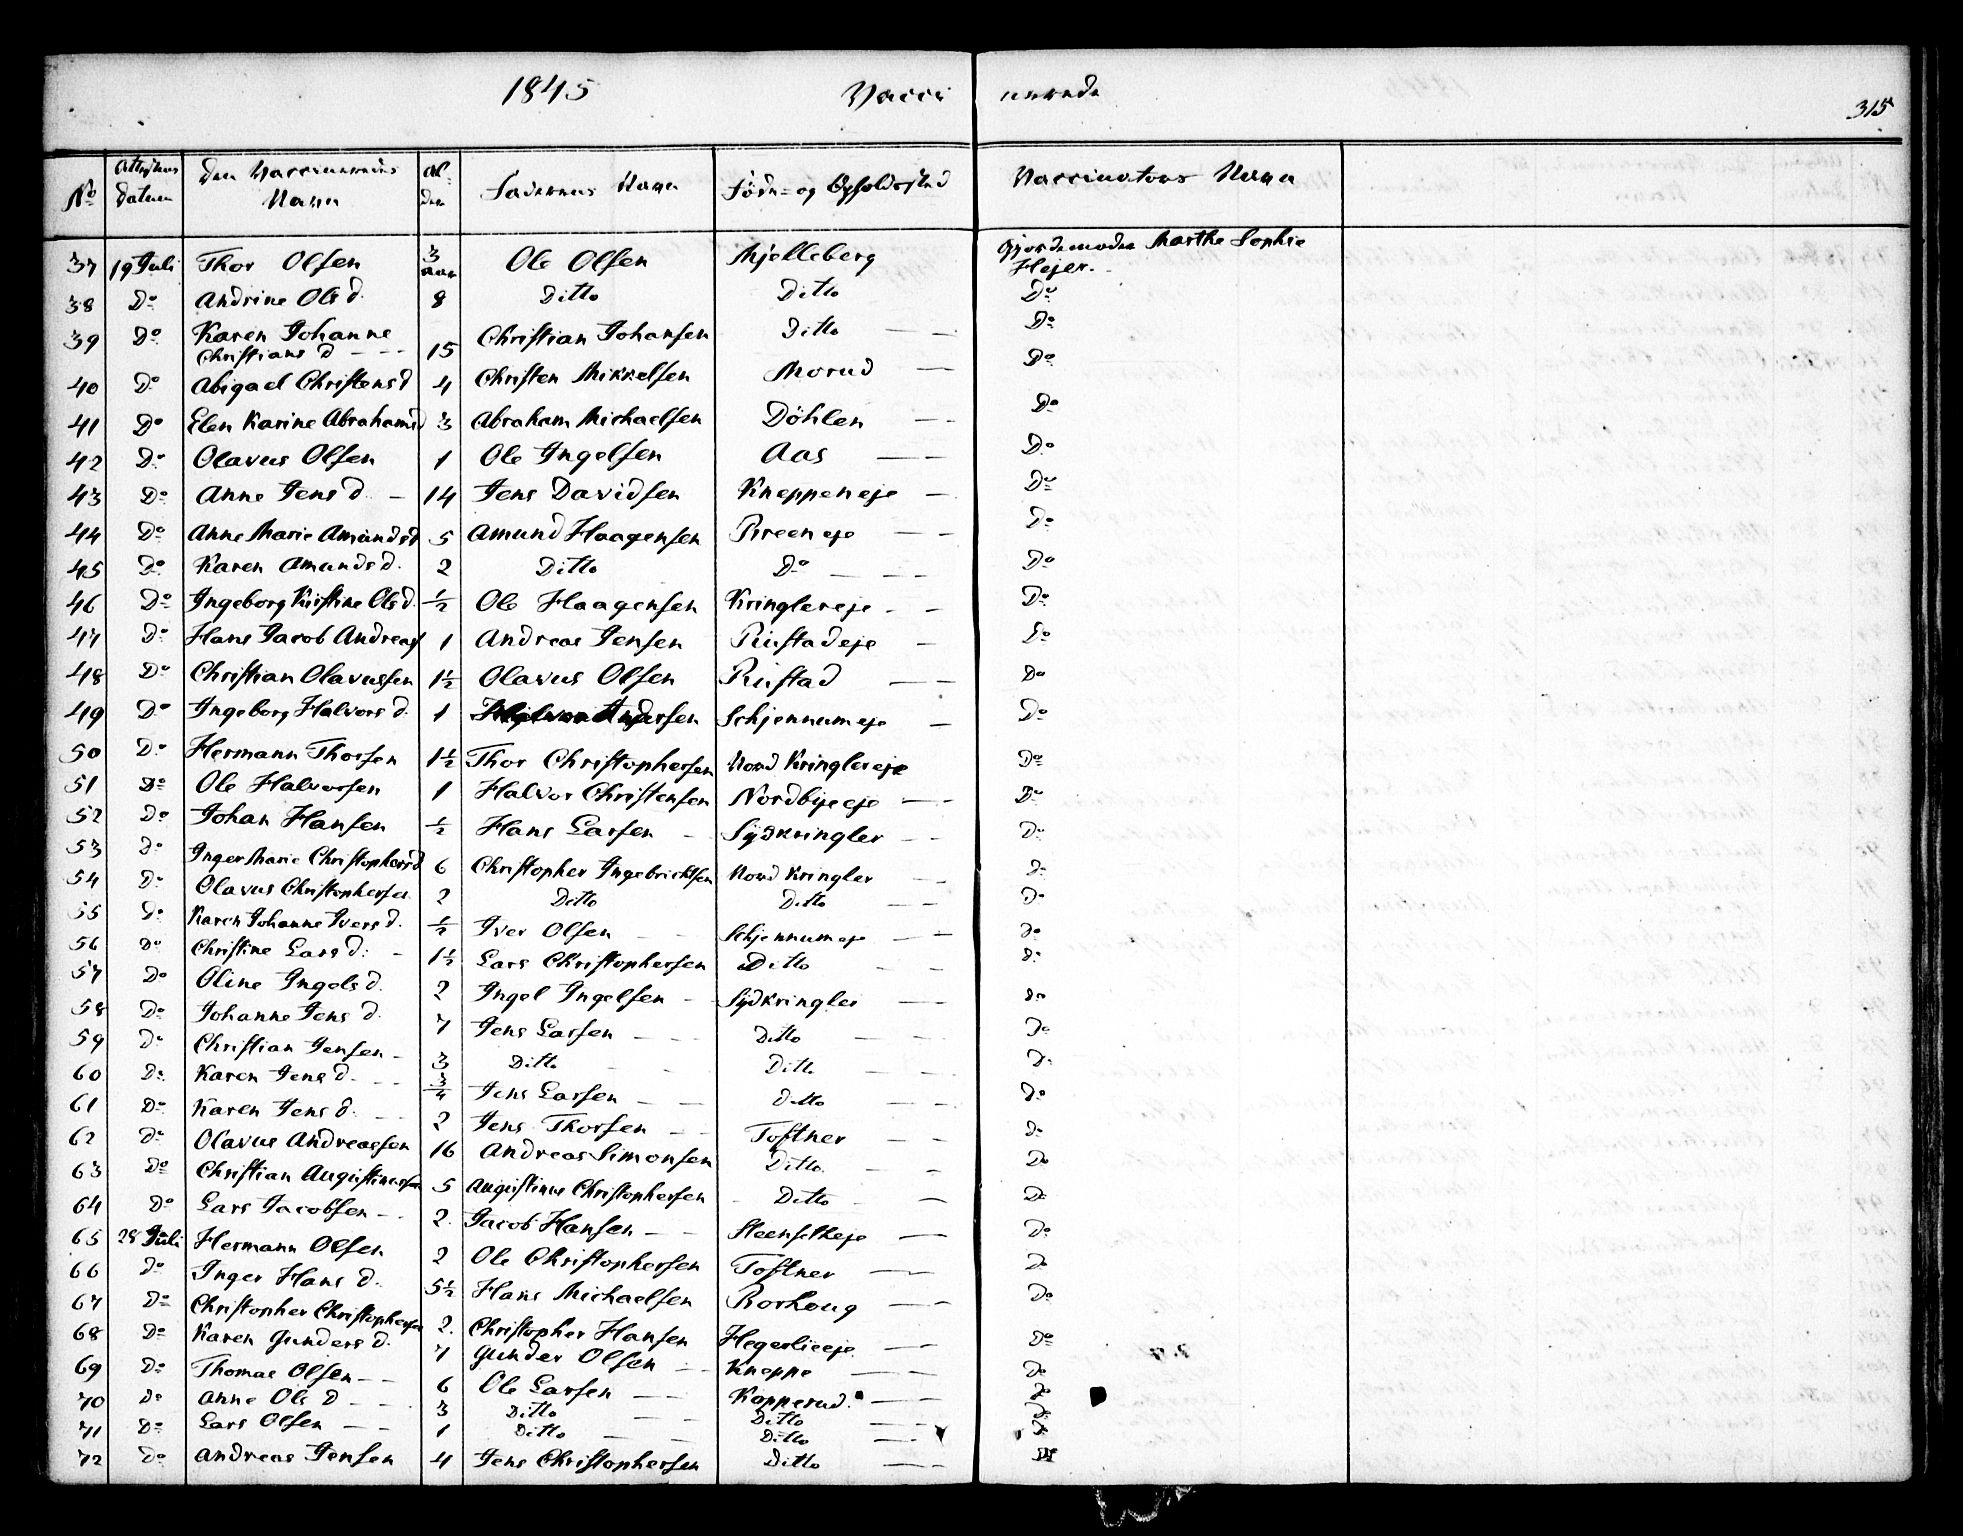 1845 Vacci nerede
315
No Attestens Datum Den Vaccineredes Navn Al- der Faderens Navn Föde- og Opholdssted Vaccinators Navn
37 19 Juli Thor Olsen 3 aar Ole Olsen Mjelleberg Gjordemoder Marthe Sophie Hejer.
38 Do Andrine Ols d. 8 Ditto Ditto Do
39 Do Karen Johanne Christians d 15 Christian Johansen Ditto Do
40 Do Abigael Christens d 4 Christen Mikkelsen Morud Do
41 Do Elen Karine Abrahams d 3 Abraham Michaelsen Döhlen Do
42 Do Olavus Olsen 1 Ole Ingelsen Aas Do
43 Do Anne Jens d. 14 Jens Davidsen Kneppeneje Do
44 Do Anne Marie Amunds d 5 Amund Haagensen Breeneje Do
45 Do Karen Amunds d. 2 Ditto Do Do
46 Do Ingeborg Kirstine Ols d. 1/2 Ole Haagensen Kringlereje Do
47 Do Hans Jacob Andreas 1 Andreas Jensen Rustadeje Do
48 Do Christian Olavussen 1 1/2 Olavus Olsen Rustad Do
49 Do Ingeborg Halvors d. 1 Halvor Andersen Schjennumeje Do
50 Do Hermann Thorsen 1 1/2 Thor Christophersen Nord Kringlereje Do
51 Do Ole Halvorsen 1 Halvor Christensen Nordbyeeje Do
52 Do Johan Hansen 1/2 Hans Larsen Sydkringler Do
53 Do Inger Marie Christophers d 6 Christopher Ingebrichtsen Nord Kringler Do
54 Do Olavus Christophersen 2 Ditto Ditto Do
55 Do Karen Johanne Ivers d. 1/2 Iver Olsen Schjennumeje Do
56 Do Christine Lars d: 1 1/2 Lars Christophersen Ditto Do
57 Do Oline Ingels d. 2 Ingel Ingelsen Sydkringler Do
58 Do Johanne Jens d. 7 Jens Larsen Ditto Do
59 Do Christian Jensen 3 Ditto Ditto Do
60 Do Karen Jens d. 3/4 Jens Larsen Ditto Do
61 Do Karen Jens d. 2 Jens Thorsen Toftner Do
62 Do Olavus Andreassen 16 Andreas Simonsen Ditto Do
63 Do Christian Augustinussen 5 Augustinus Christophersen Ditto Do
64 Do Lars Jacobsen 2. Jacob Hansen Steensetheje Do
65 28 Juli Hermann Olsen 2 Ole Christophersen Toftner Do
66 Do Inger Hans d. 5 1/2 Hans Michaelsen Rorhoug Do
67 Do Christopher Christophersen 2. Christopher Hansen Hegerlieeje Do
68 Do Karen Gunders d. 7 Gunder Olsen Kneppe Do
69 Do Thomas Olsen 6 Ole Larsen Kopperud. Do
70 Do Anne Ols d 3 Ditto Ditto Do
71 Do Lars Olsen 1 Ditto Ditto Do
72 Do Andreas Jensen 4 Jens Christophersen Ditto Do